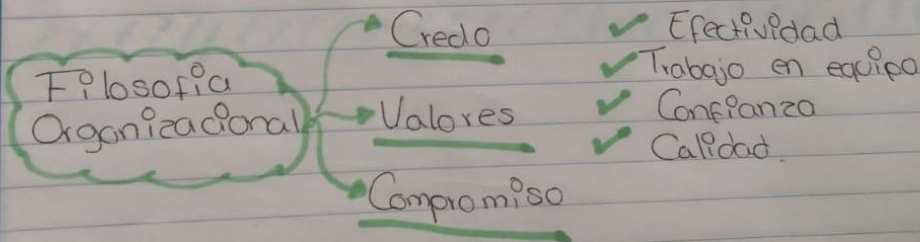 Filosofia
Organizacional
Credo
Valores
Compromiso
Efectividad
Trabajo en equipo
Confianza
Calidad.